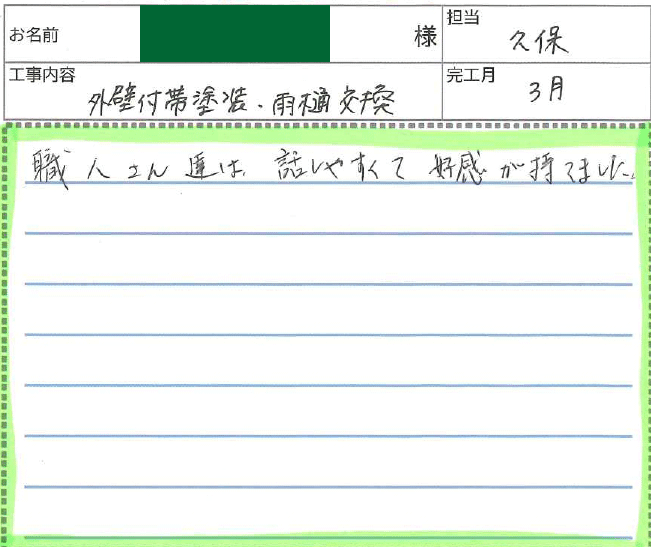 お名前 様 担当 久保
工事内容 外壁付帯塗装・雨樋交換 完工月 3月
職人さん達は、話しやすくて好感が持てました。